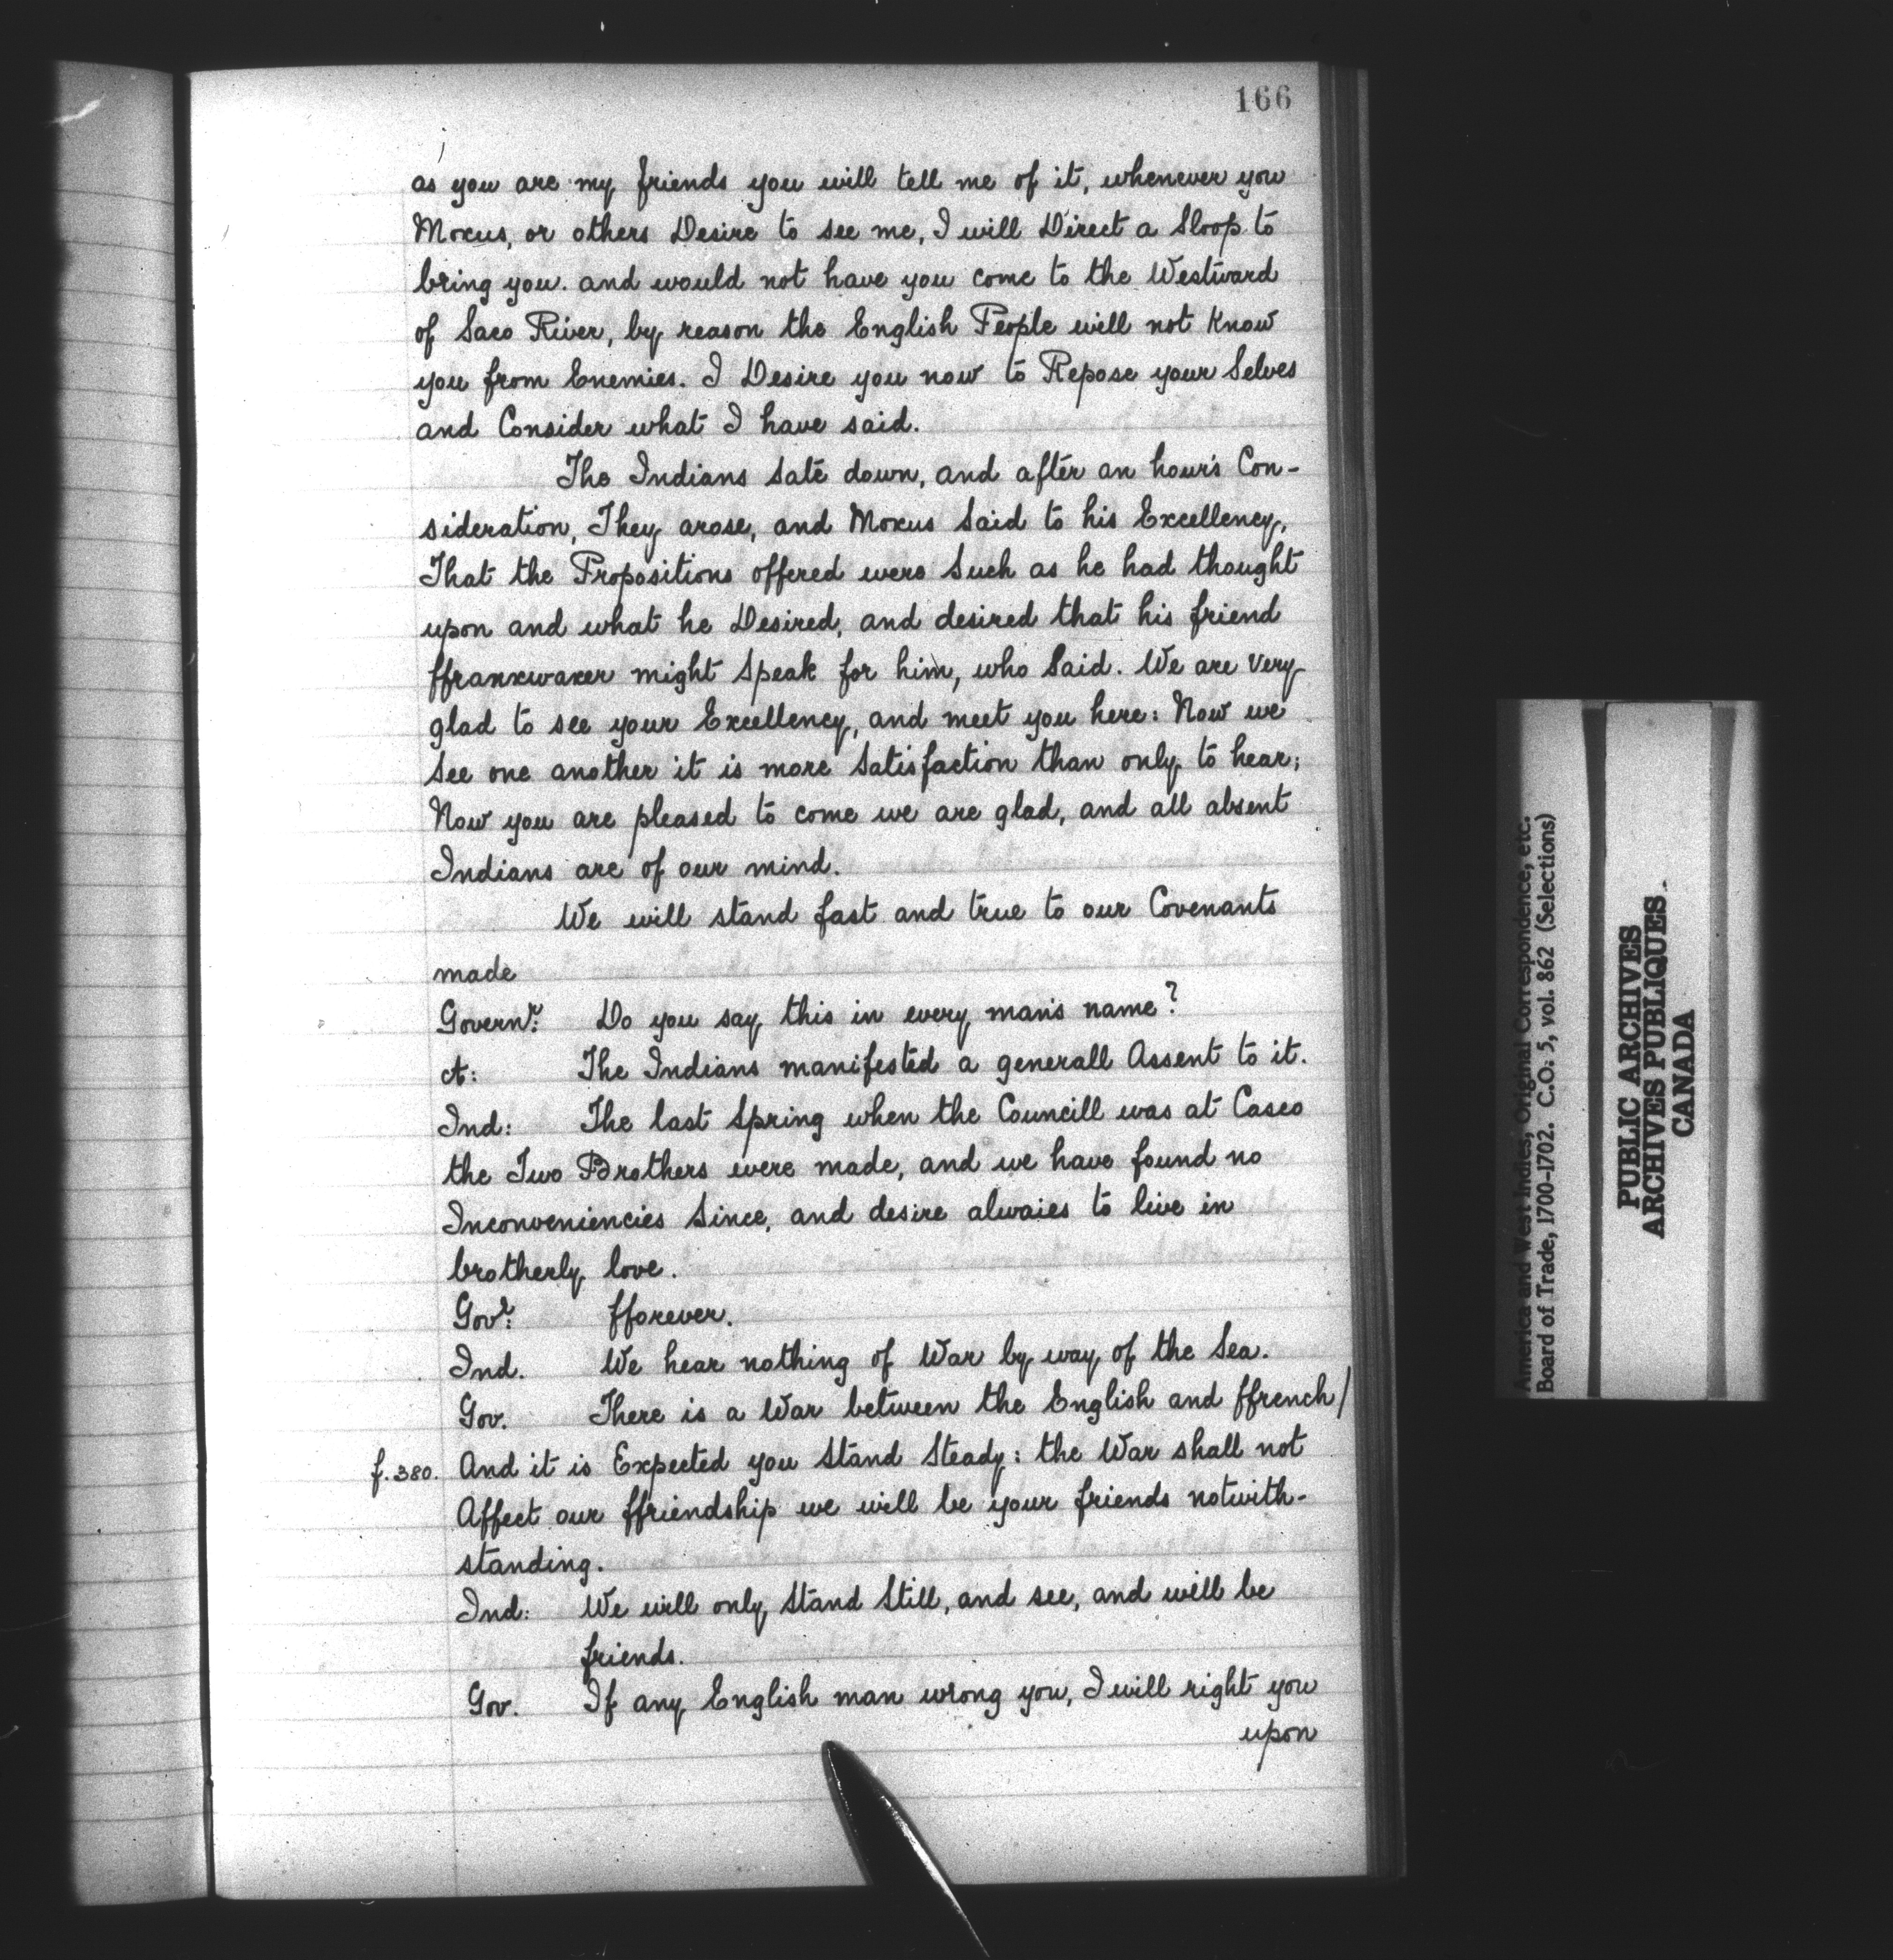 166
as you are my friends you will tell me of it, whenever you
Moxus, or others Desire to see me, I will Direct a Sloop to
bring you. and would not have you come to the Westward
of Saco River, by reason the English People will not Know
you from Enemies. I Desire you now to Repose your Selves
and Consider what I have said.
The Indians Sate down, and after an hour's Con-
sideration, They arose, and Moxus Said to his Excellency,
That the Propositions offered were Such as he had thought
upon and what he Desired, and desired that his friend
ffranxwaxer might Speak for him, who Said. We are very
glad to see your Excellency, and meet you here: Now we
See one another it is more Satisfaction than only to hear;
Now you are pleased to come we are glad, and all absent
Indians are of our mind.
We will stand fast and true to our Covenants
made
Governr: Do you say this in every man's name?
A: The Indians manifested a generall Assent to it.
Ind: The last Spring when the Councill was at Casco
the Two Brothers were made, and we have found no
Inconveniencies Since, and desire alwaies to live in
brotherly love.
Govr: fforever.
Ind. We hear nothing of War by way of the Sea.
Gov. There is a War between the English and ffrench/
f.380. And it is Expected you Stand Steady: the War shall not
Affect our ffriendship we will be your friends notwith-
standing.
Ind: We will only Stand Still, and see, and will be
friends.
Gov. If any English man wrong you, I will right you
upon
America and West Indies, Original Correspondence, etc.
Board of Trade, 1700-1702. C.O. 5, vol. 862 (Selections)
PUBLIC ARCHIVES
ARCHIVES PUBLIQUES
CANADA